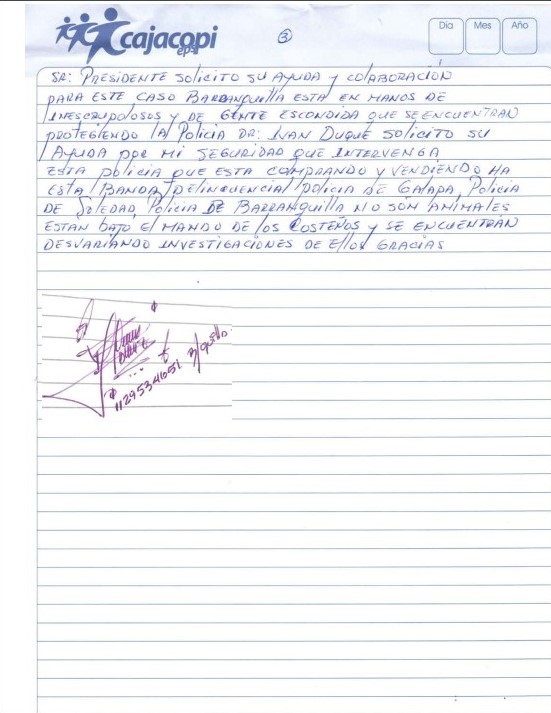 cajacopi
eps
3
Día Mes Año
SR: PRESIDENTE SOLICITO SU AYUDA Y COLABORACIÓN
PARA ESTE CASO BARRANQUILLA ESTA EN MANOS DE
INESCRUPOLOSOS Y DE GENTE ESCONDIDA QUE SE ENCUENTRAN
PROTEGIENDO LA POLICIA DR: IVAN DUQUE SOLICITO SU
AYUDA POR MI SEGURIDAD QUE INTERVENGA
ESTA POLICIA QUE ESTA COMPRANDO Y VENDIENDO HA
ESTA BANDA DELINCUENCIAL POLICIA DE GALAPA, POLICIA
DE SOLEDAD, POLICIA DE BARRANQUILLA NO SON ANIMALES
ESTAN BAJO EL MANDO DE LOS COSTEÑOS Y SE ENCUENTRAN
DESVARIANDO INVESTIGACIONES DE EllOS GRACIAS
1129534651 B/quilla